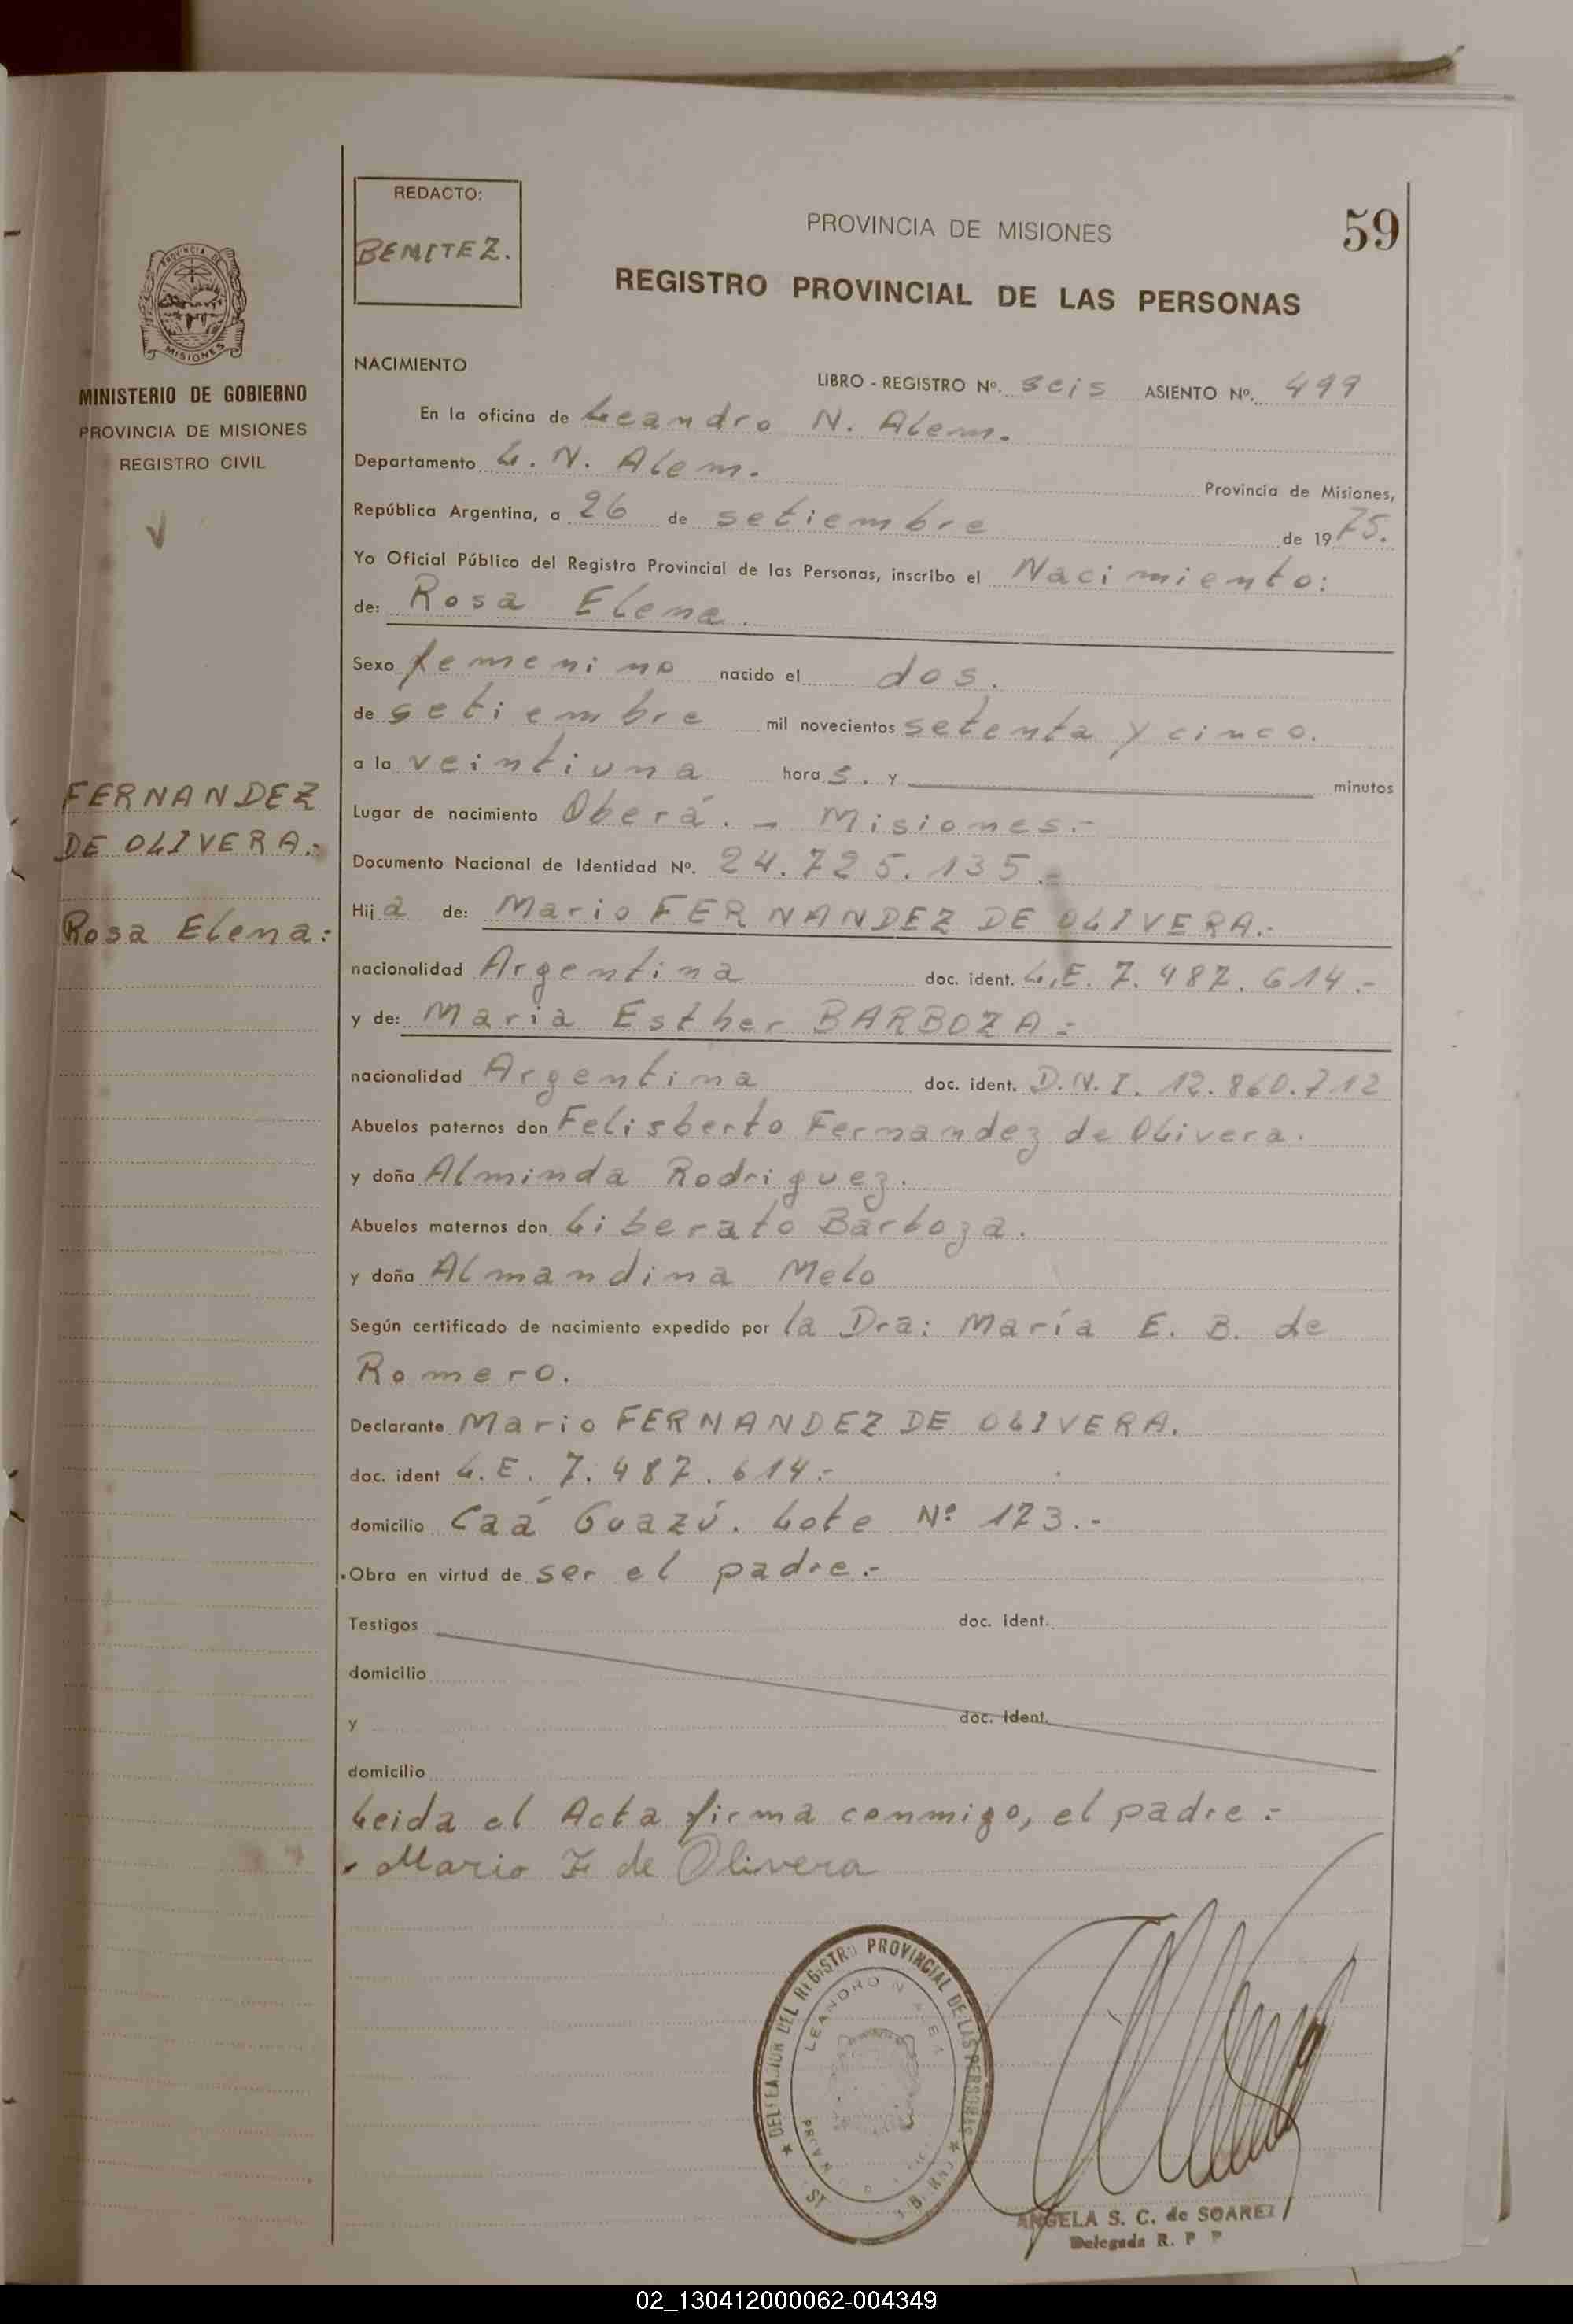 REDACTO:
BENITEZ.
PROVINCIA DE MISIONES
59
REGISTRO PROVINCIAL DE LAS PERSONAS
PROVINCIA DE
MISIONES
MINISTERIO DE GOBIERNO
PROVINCIA DE MISIONES
REGISTRO CIVIL
FERNANDEZ
DE OLIVERA.-
Rosa Elena:
NACIMIENTO
LIBRO - REGISTRO Nº. seis ASIENTO Nº. 499
En la oficina de Leandro N. Alem.
Departamento L. N. Alem.
Provincia de Misiones,
República Argentina, a 26 de setiembre de 1975.
Yo Oficial Público del Registro Provincial de las Personas, inscribo el Nacimiento:
de: Rosa Elena.
Sexo femenino nacido el dos.
de setiembre mil novecientos setenta y cinco.
a la veintiuna hora s. y minutos
Lugar de nacimiento Oberá. - Misiones.-
Documento Nacional de Identidad Nº. 24.725.135.-
Hij a de: Mario FERNANDEZ DE OLIVERA.-
nacionalidad Argentina doc. ident. L.E. 7.487.614.-
y de: Maria Esther BARBOZA =
nacionalidad Argentina doc. ident. D.N.I. 12.860.712
Abuelos paternos don Felisberto Fernandez de Olivera.
y doña Alminda Rodriguez.
Abuelos maternos don Liberato Barboza.
y doña Almandina Melo
Según certificado de nacimiento expedido por la Dra: María E. B. de
Romero.
Declarante Mario FERNANDEZ DE OLIVERA.
doc. ident L.E. 7.487.614.-
domicilio Caá Guazú. Lote Nº 173.-
Obra en virtud de ser el padre.-
Testigos doc. ident.
domicilio
y doc. ident.
domicilio
Leida el Acta firma conmigo, el padre.-
Mario F de Olivera
DELEGACION DEL REGISTRO PROVINCIAL DE LAS PERSONAS
LEANDRO N ALEM
ANGELA S. C. de SOAREZ
Delegada R. P P
02_130412000062-004349